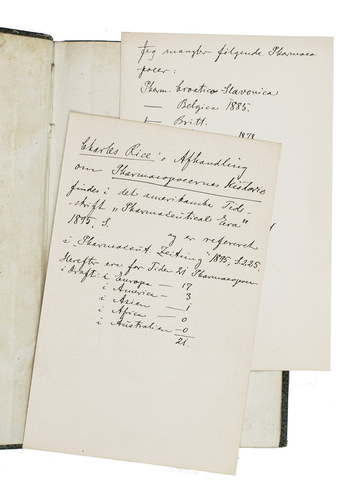 Jeg mangler følgende Pharmaco
poeer:
Pharm. Croatico-Slavonica
— Belgica 1885.
— Britt.
1878
Charles Rice's Afhandling
om Pharmacopoeernes Historie
findes i det amerikanske Tids-
skrift "Pharmaceutical Era"
1895, S.
og er refereret
i Pharmaceut. Zeitung 1895, S. 225.
Herefter ere for Tiden 21 Pharmacopoeer
i Kraft: i Europa — 17
i America — 3
i Asien — 1
i Africa — 0
i Australien — 0
21.